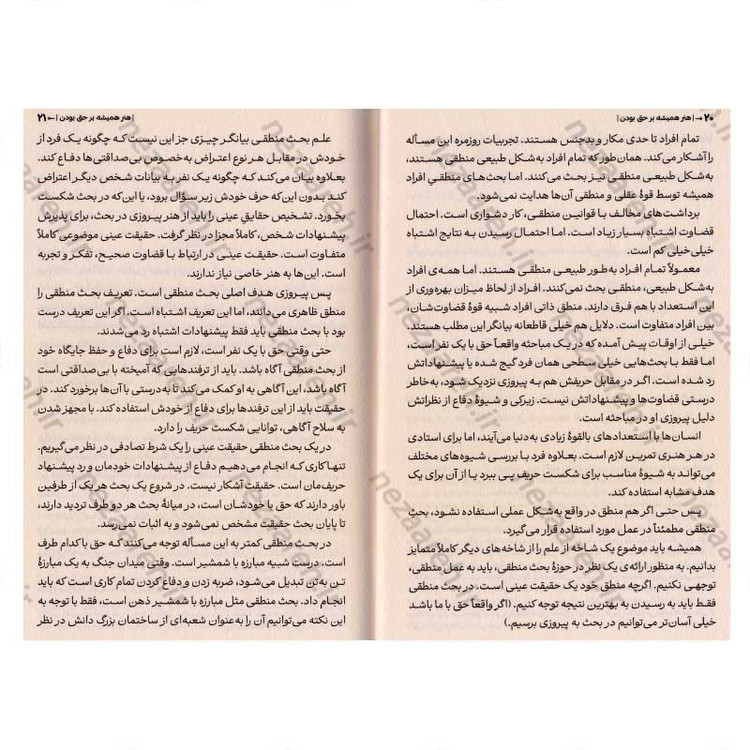 ۲۰ → | هنر همیشه بر حق بودن |
تمام افراد تا حدی مکار و بدجنس هستند. تجربیات روزمره این مسأله
را آشکار می‌کند. همان‌طور که تمام افراد به‌شکل طبیعی منطقی هستند،
به‌شکل طبیعی منطقی نیز بحث می‌کنند. اما بحث‌های منطقی افراد
همیشه توسط قوهٔ عقلی و منطقی آن‌ها هدایت نمی‌شود.
برداشت‌های مخالف با قوانین منطقی، کار دشواری است. احتمال
قضاوت اشتباه بسیار زیاد است. اما احتمال رسیدن به نتایج اشتباه
خیلی‌خیلی کم است.
معمولاً تمام افراد به‌طور طبیعی منطقی هستند. اما همه‌ی افراد
به‌شکل طبیعی، منطقی بحث نمی‌کنند. افراد از لحاظ میزان بهره‌وری از
این استعداد با هم فرق دارند. منطق ذاتی افراد شبیه قوهٔ قضاوت‌شان،
بین افراد متفاوت است. دلایل هم خیلی قاطعانه بیانگر این مطلب هستند.
خیلی از اوقات پیش آمده که در یک مباحثه واقعاً حق با یک نفر است،
اما فقط با بحث‌هایی خیلی سطحی همان فرد گیج شده یا پیشنهاداتش
رد شده است. اگر در مقابل حریفش هم به پیروزی نزدیک شود، به‌خاطر
درستی قضاوت‌ها و پیشنهاداتش نیست. زیرکی و شیوهٔ دفاع از نظراتش
دلیل پیروزی او در مباحثه است.
انسان‌ها با استعدادهای بالقوهٔ زیادی به‌دنیا می‌آیند، اما برای استادی
در هر هنری تمرین لازم است. بعلاوه فرد با بررسی شیوه‌های مختلف
می‌تواند به شیوهٔ مناسب برای شکست حریف پی ببرد یا از آن برای یک
هدف مشابه استفاده کند.
پس حتی اگر هم منطق در واقع به‌شکل عملی استفاده نشود، بحث
منطقی مطمئناً در عمل مورد استفاده قرار می‌گیرد.
همیشه باید موضوع یک شاخه از علم را از شاخه‌های دیگر کاملاً متمایز
بدانیم. به منظور ارائه‌ی یک نظر در حوزهٔ بحث منطقی، باید به عمل منطقی،
توجهی نکنیم. اگرچه منطق خود یک حقیقت عینی است. در بحث منطقی
فقط باید به رسیدن به بهترین نتیجه توجه کنیم. (اگر واقعاً حق با ما باشد
خیلی آسان‌تر می‌توانیم در بحث به پیروزی برسیم.)
| هنر همیشه بر حق بودن | ← ۲۱
علم بحث منطقی بیانگر چیزی جز این نیست که چگونه یک فرد از
خودش در مقابل هر نوع اعتراض به‌خصوص بی‌صداقتی‌ها دفاع کند.
بعلاوه بیان می‌کند که چگونه یک نفر به بیانات شخص دیگر اعتراض
کند بدون این‌که حرف خودش زیر سؤال برود، یا این‌که در بحث شکست
بخورد. تشخیص حقایق عینی را باید از هنر پیروزی در بحث، برای پذیرش
پیشنهادات شخص، کاملاً مجزا در نظر گرفت. حقیقت عینی موضوعی کاملاً
متفاوت است. حقیقت عینی در ارتباط با قضاوت صحیح، تفکر و تجربه
است. این‌ها به هنر خاصی نیاز ندارند.
پس پیروزی هدف اصلی بحث منطقی است. تعریف بحث منطقی را
منطق ظاهری می‌دانند، اما این تعریف اشتباه است. اگر این تعریف درست
بود با بحث منطقی باید فقط پیشنهادات اشتباه رد می‌شدند.
حتی وقتی حق با یک نفر است، لازم است برای دفاع و حفظ جایگاه خود
از بحث منطقی آگاه باشد. باید از ترفندهایی که آمیخته با بی‌صداقتی است
آگاه باشد، این آگاهی به او کمک می‌کند تا به‌درستی با آن‌ها برخورد کند. در
حقیقت باید از این ترفندها برای دفاع از خودش استفاده کند. با مجهز شدن
به سلاح آگاهی، توانایی شکست حریف را دارد.
در یک بحث منطقی حقیقت عینی را یک شرط تصادفی در نظر می‌گیریم.
تنها کاری که انجام می‌دهیم دفاع از پیشنهادات خودمان و رد پیشنهاد
حریف‌مان است. حقیقت آشکار نیست. در شروع یک بحث هر یک از طرفین
باور دارند که حق با خودشان است، در میانهٔ بحث هر دو طرف تردید دارند،
تا پایان بحث حقیقت مشخص نمی‌شود و به اثبات نمی‌رسد.
در بحث منطقی کمتر به این مسأله توجه می‌کنند که حق با کدام طرف
است. درست شبیه مبارزه با شمشیر است. وقتی میدان جنگ به یک مبارزهٔ
تن‌به‌تن تبدیل می‌شود، ضربه زدن و دفاع کردن تمام کاری است که باید
انجام داد. بحث منطقی مثل مبارزه با شمشیر ذهن است، فقط با توجه به
این نکته می‌توانیم آن را به‌عنوان شعبه‌ای از ساختمان بزرگ دانش در نظر
nezaareh.ir